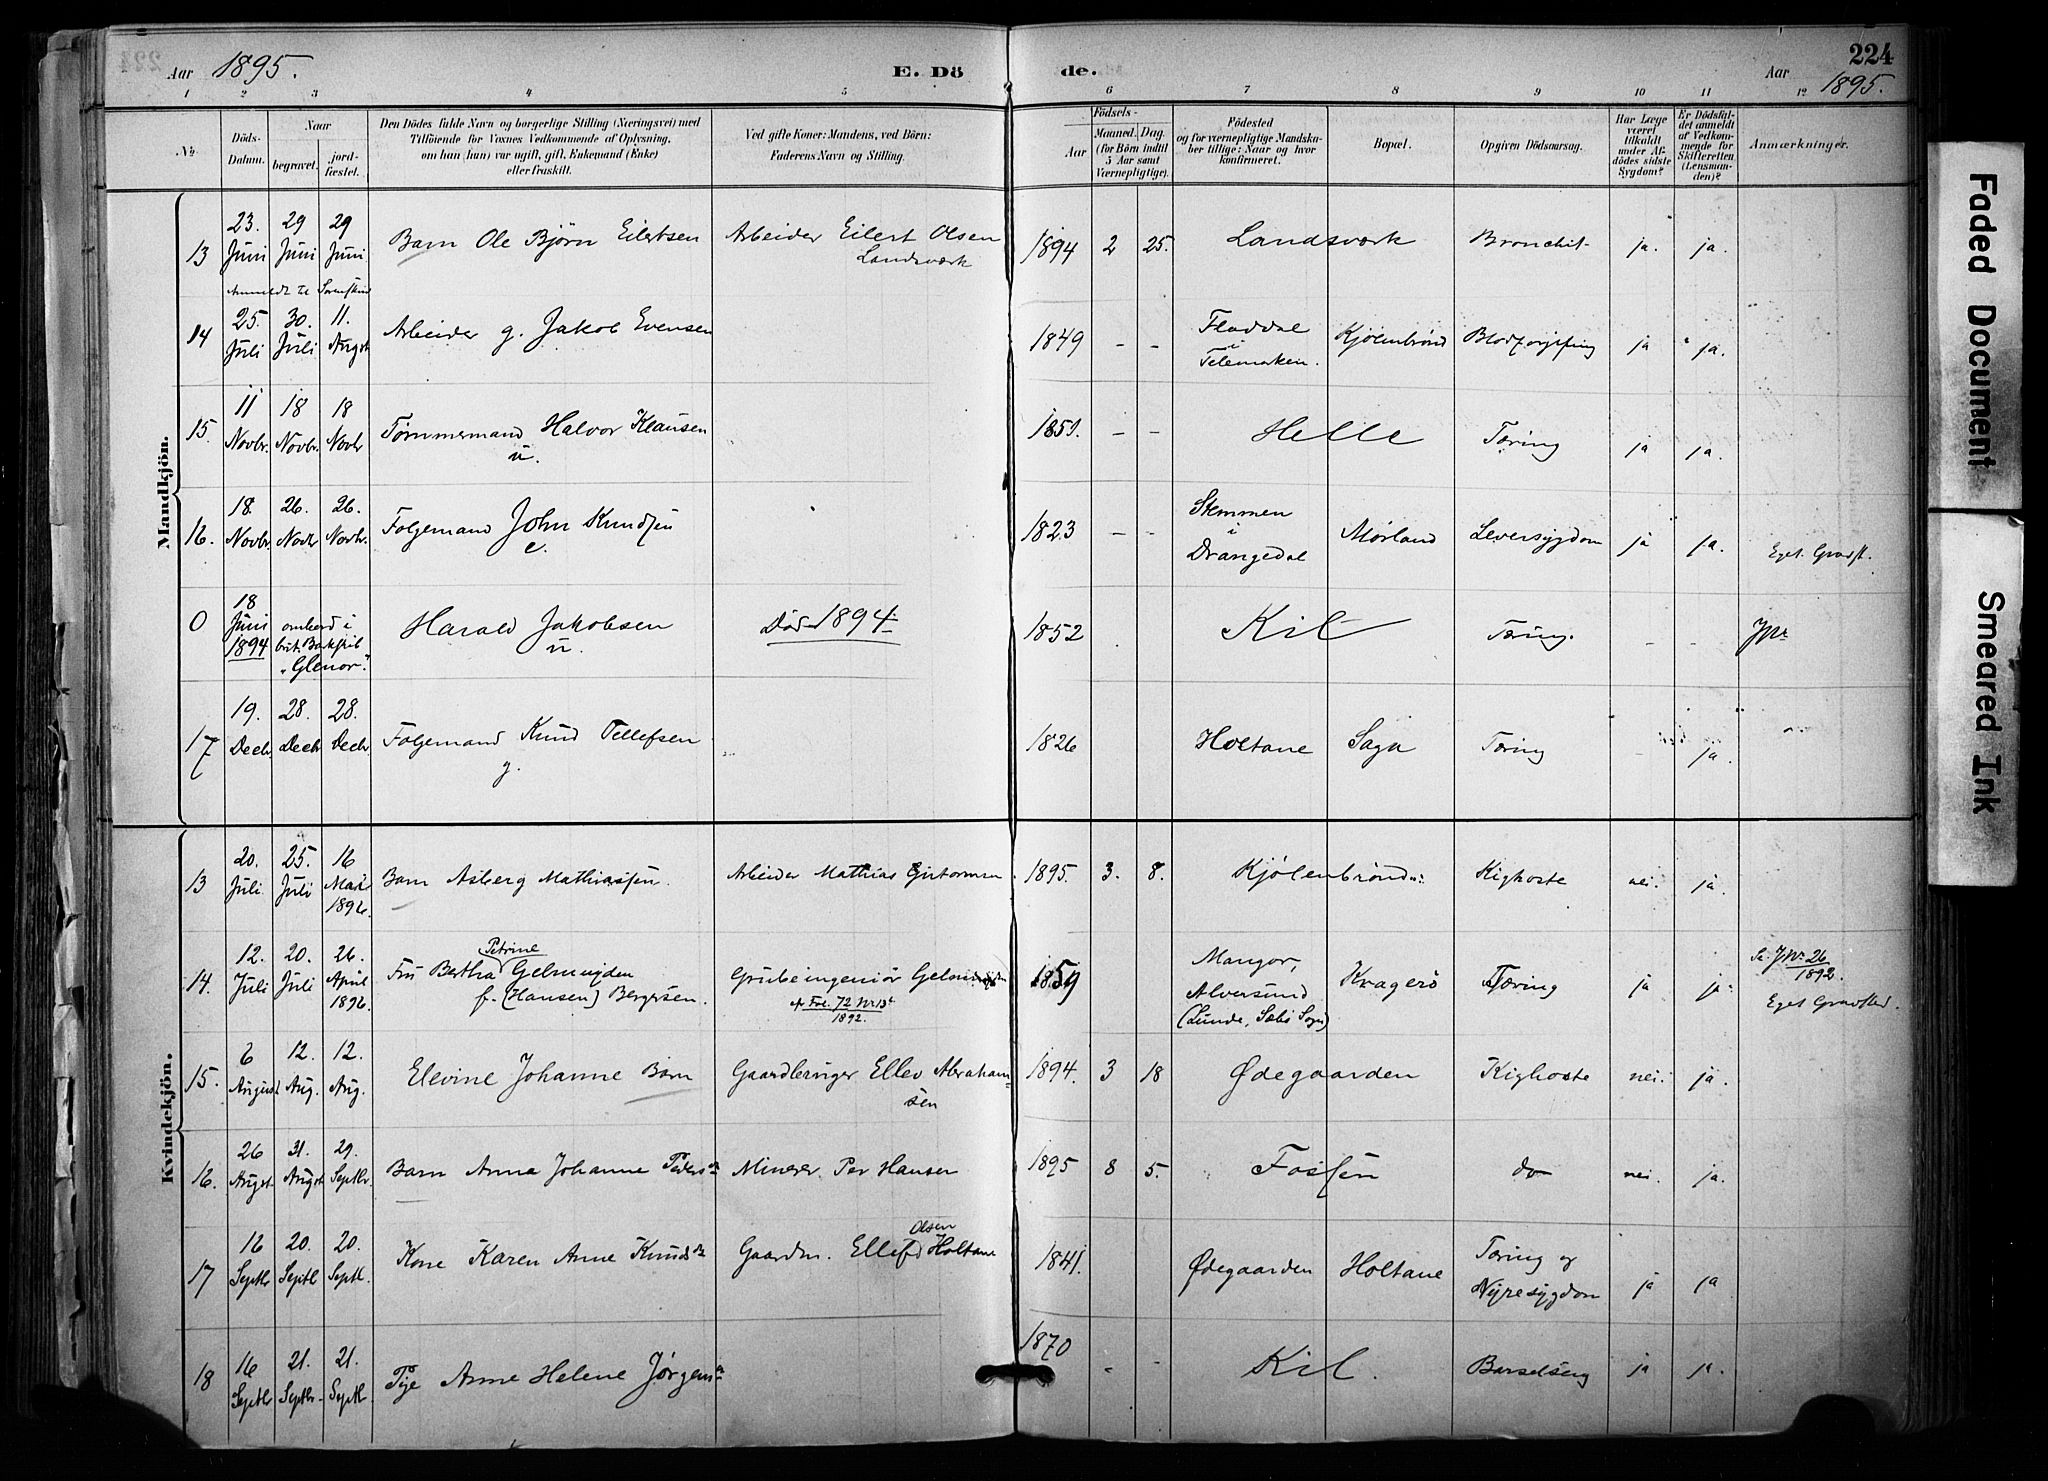 224
Aar 1895. E. Dö de. Aar 1895.
1 2 3 4 5 6 7 8 9 10 11 12
No. Döds-Datum. Naar begravet. jord-fæstet. Den Dödes fulde Navn og borgerlige Stilling (Næringsvei) med Tilföiende for Voxnes Vedkommende af Oplysning, om han (hun) var ugift, gift, Enkemand (Enke) eller fraskilt. Ved gifte Koner: Mandens, ved Börn: Faderens Navn og Stilling. Aar Födsels- Maaned. Dag. (for Börn indtil 5 Aar samt Værnepligtige). Födested og for værnepligtige Mandskaber tillige: Naar og hvor konfirmeret. Bopæl. Opgiven Dödsaarsag. Har Læge været tilkaldt under Afdödes sidste Sygdom? Er Dödsfaldet anmeldt af Vedkommende for Skifteretten (Lensmanden)? Anmærkninger.
Mandkjön.
13 23. Juni 29 Juni 29 Juni Barn Ole Björn Eilertsen Arbeider Eilert Olsen Landsværk 1894 2 25. Landsværk Bronchit- ja. ja.
Anmeldt til
14 25. Juli 30. Juli 11. Augst Arbeider g. Jakob Evensen 1849 - - Fladdal i Telemarken. Kjølenbrønd Blodforgiftning ja ja.
15. 11 Novbr. 18 Novbr. 18 Novbr Tømmermand Halvor Klausen u. 1851. - - Helle Tæring ja ja.
16. 18. Novbr. 26. Novbr 26. Novbr. Folgemand John Knudsen e. 1823 - - Stemmen i Drangedal Mørland Leversygdom ja ja. Eget Gravst.
0 18 Juni 1894 ombord i brit. Barkskib "Glenor." Harald Jakobsen u. Död 1894 1852 Kil Tæring. - -
17 19. Decbr. 28. Decbr 28. Decbr Folgemand Knud Tellefsen g. 1826 Holtane Saga Tæring - ja.
Kvindekjön.
13 20. Juli 25. Juli 16 Mai 1896. Barn Asberg Mathiassen. Arbeider Mathias 1895. 3. 8. Kjølenbrønd Kighoste nei. ja.
14. 12. Juli 20. Juli 26. April 1896. Fru Bertha Petrine Gelmuyden f. (Hansen) Bergersen. Grubeingeniør Gelmuyden 1892. 1859 Manger, Alversund (Lunde, Sogn) Kragerö Tæring ja ja 26 1892. Eget Gravsted.
15. 6 August 12. Aug. 12. Aug. Elevine Johanne Barn Gaardbruger Ellev Abrahamsen 1894. 3 18 Ødegaarden Kighoste nei. ja.
16. 26 Augst. 31. Augst 29. Septbr. Barn Anna Johanne Peders Minerer Per Hansen 1895 8 5. Fossen do nei. ja.
17 16 Septbr 20. Septbr 20. Septbr. Kone Karen Anne Knuds Gaardm. Ellef Olsen Holtane 1841. Ødegaarden Holtane Tæring og Nyresygdom ja ja
18 16 Septbr 21. Septbr. 21. Septbr. Pige Anne Helene Jörgens 1870 - - Kil. Barselseng ja ja.
Faded Document
Smeared Ink